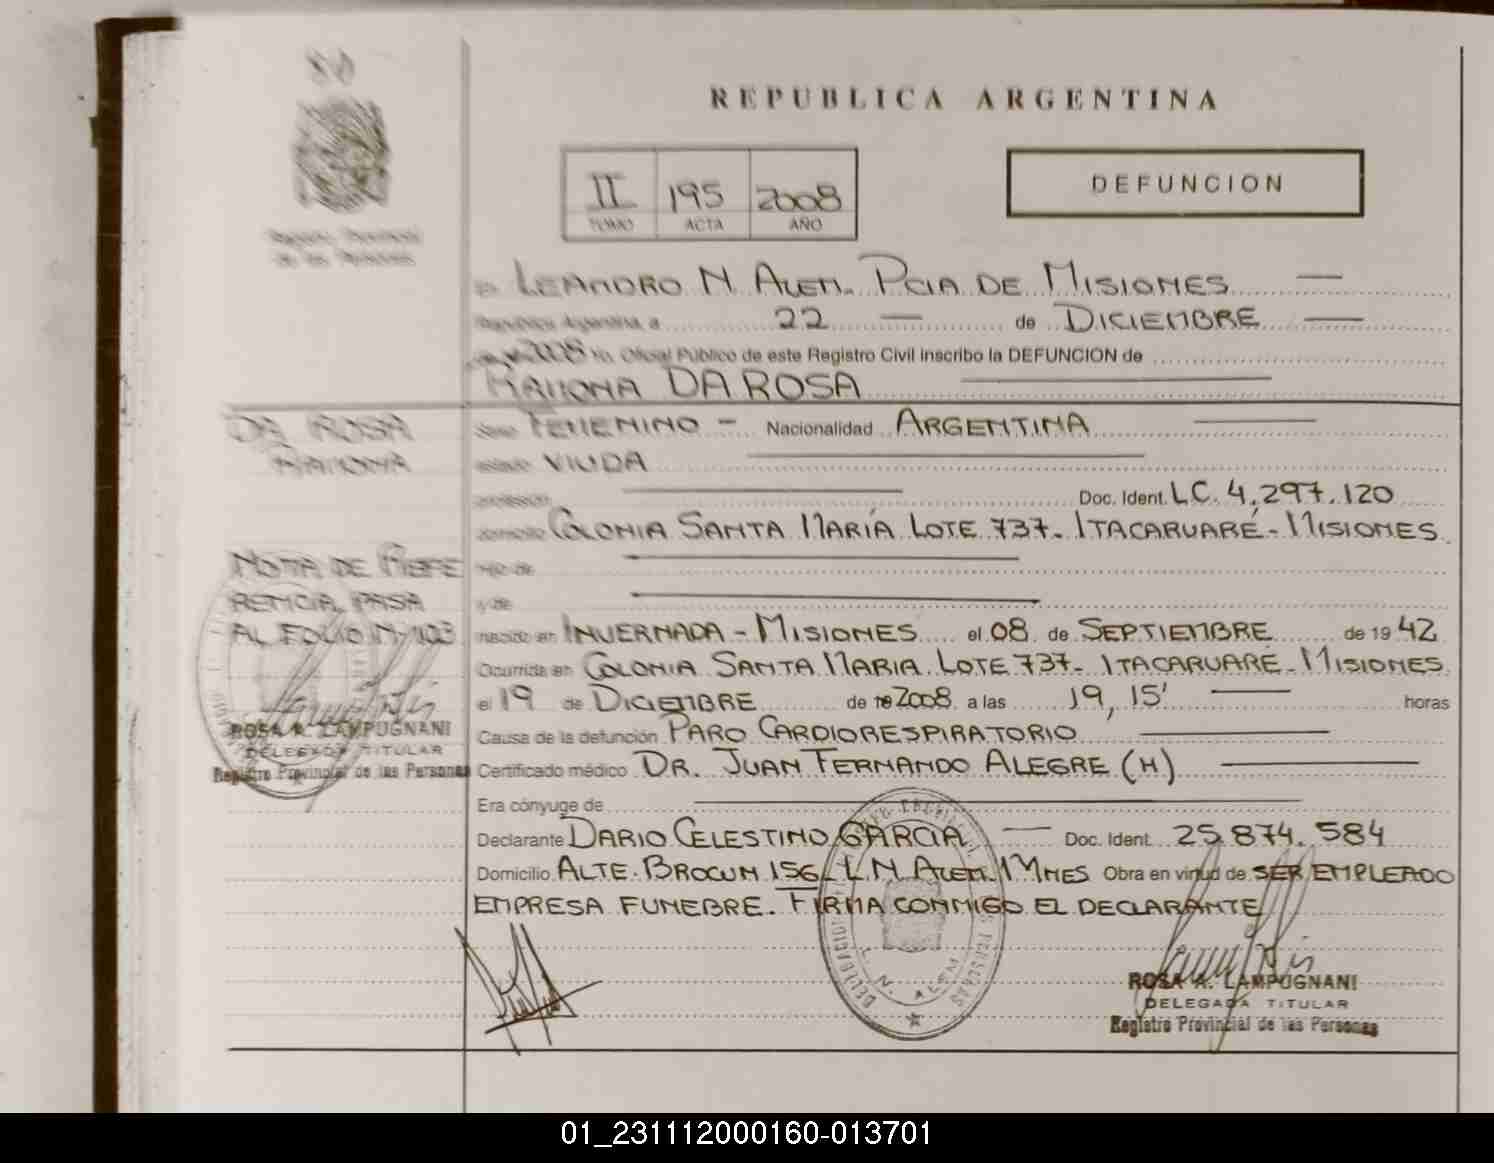 REPUBLICA ARGENTINA
DEFUNCION
II 195 2008
TOMO ACTA AÑO
Registro Provincial
de las Personas
En LEANDRO N. ALEM. PCIA DE MISIONES
República Argentina, a 22 de DICIEMBRE
2008 Yo, Oficial Público de este Registro Civil inscribo la DEFUNCION de
RAMONA DA ROSA
DA ROSA
RAMONA
Sexo FEMENINO - Nacionalidad ARGENTINA
estado VIUDA
profesión Doc. Ident. L.C. 4.297.120
domicilio COLONIA SANTA MARÍA LOTE 737- ITACARUARÉ - MISIONES
hijo de
y de
NOTA DE REFE
RENCIA PASA
AL FOLIO Nº 103
nacido en INVERNADA - MISIONES el 08 de SEPTIEMBRE de 19 42
Ocurrida en COLONIA SANTA MARIA LOTE 737- ITACARUARÉ - MISIONES
el 19 de DICIEMBRE de 2008 a las 19,15' horas
Causa de la defunción PARO CARDIORESPIRATORIO
Certificado médico DR. JUAN FERNANDO ALEGRE (H)
Era cónyuge de
Declarante DARIO CELESTINO GARCIA Doc. Ident. 25.874.584
Domicilio ALTE. BROCUN 156 - L.N. ALEM. MNES Obra en virtud de SER EMPLEADO
EMPRESA FUNEBRE. FIRMA CONMIGO EL DECLARANTE
ROSA A. LAMPUGNANI
DELEGADA TITULAR
Registro Provincial de las Personas
L. N. ALEM
ROSA A. LAMPUGNANI
DELEGADA TITULAR
Registro Provincial de las Personas
01_231112000160-013701